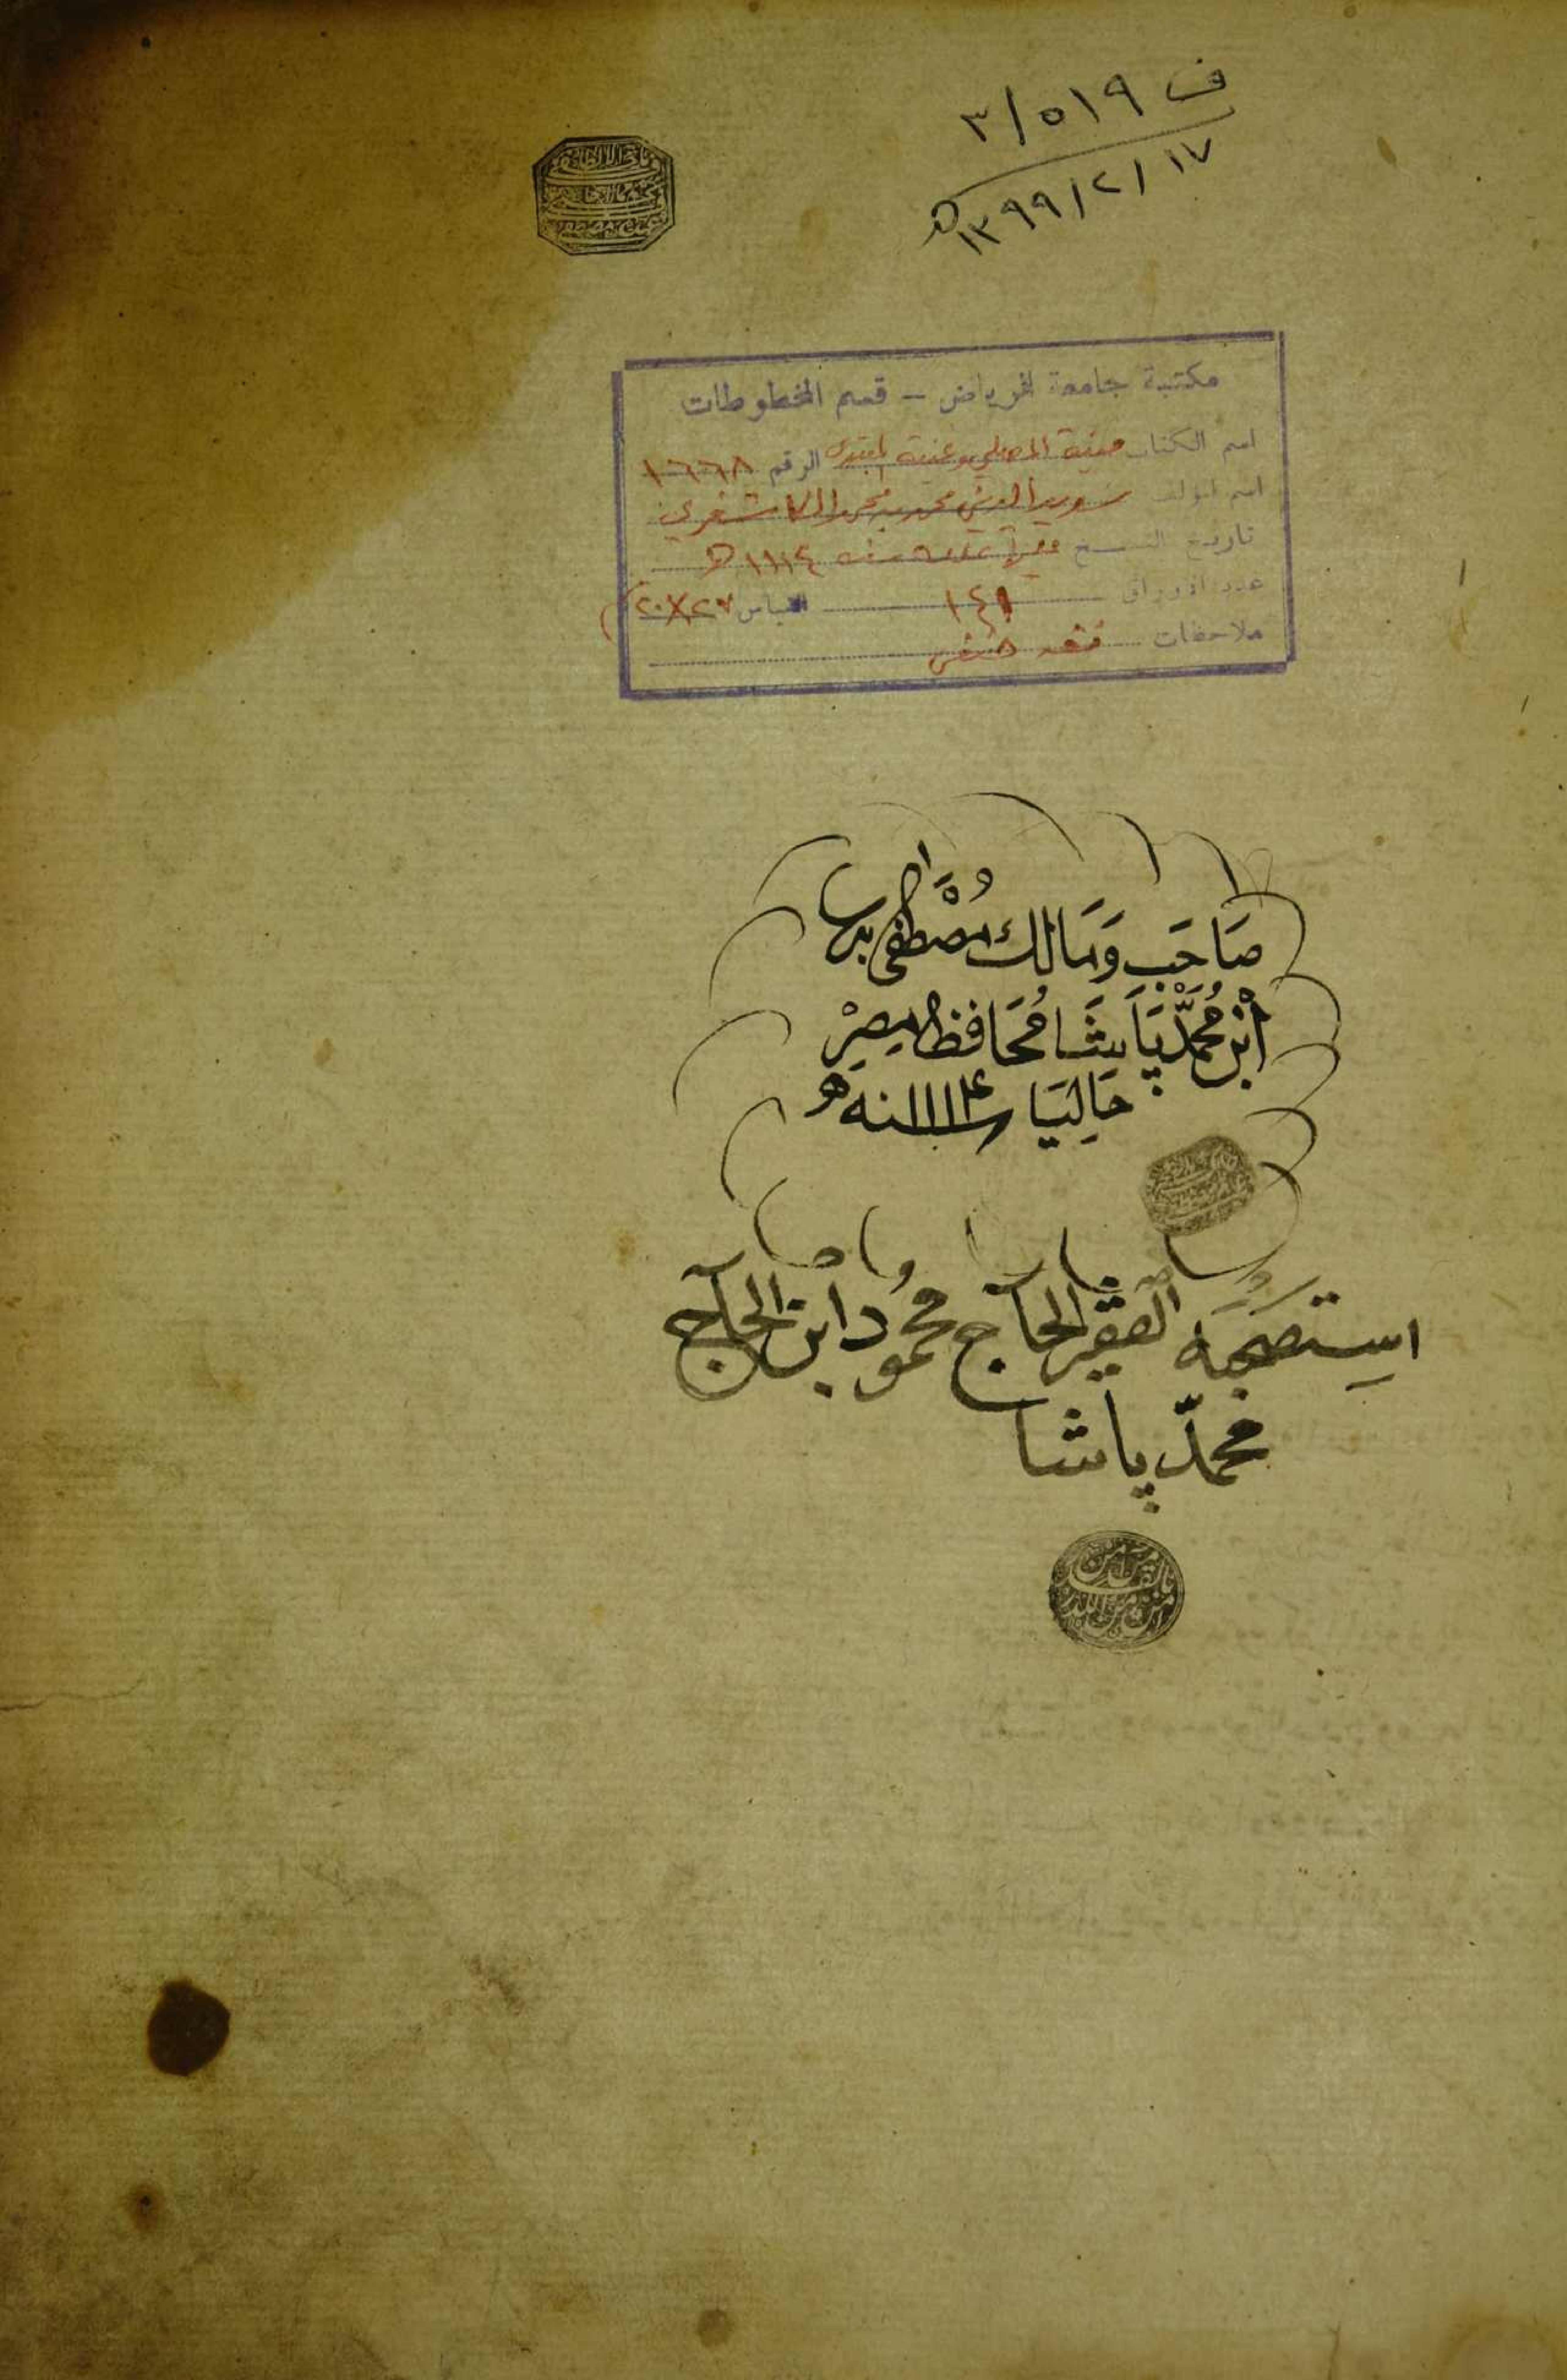 ف ٥١٩/٣
١٣٩٩/٢/١٧ ه
مكتبة جامعة الرياض - قسم المخطوطات
اسم الكتاب منية المصلي وغنية المبتدي الرقم ١٦٦٨
اسم المؤلف سديد الدين محمد بن محمد الكاشغري
تاريخ النسخ سنه ١١١٤ ه
عدد الأوراق ١٤١ القياس ٢٠X٢٧
ملاحظات فقه حنفي
صَاحَب وَمَالك مُصْطَفى
ابْن مُحَمَّد پَاشَا مُحَافِظ مِصِرْ
حَالِيَا سنه ١١١٤
استصحبه الفقير الحاج محمُود ابن الحاج
محمّد پاشا